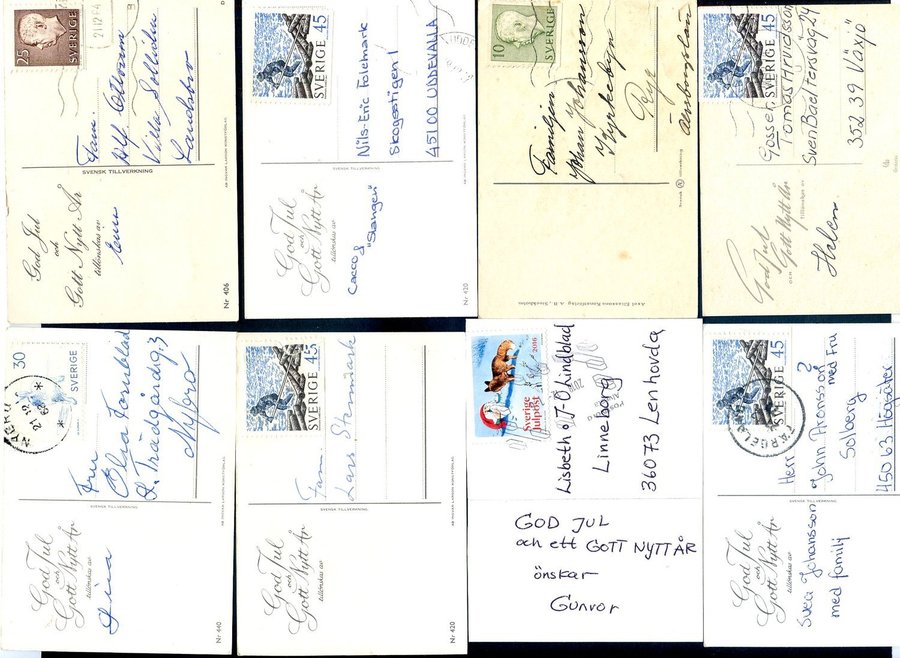 25
SVERIGE
21.12.64
Fam.
Alf Ottosson
Villa Solliden
Landsbro
SVENSK TILLVERKNING
God Jul
och
Gott Nytt År
tillönskas av
Nr 406
45
SVERIGE
Nils-Eric Folemark
Skogsstigen 1
45100 UDDEVALLA
SVENSK TILLVERKNING
God Jul
och
Gott Nytt År
tillönskas av
Cacco &
"Slangen"
Nr 420
10
SVERIGE
Familjen
Johan Johansson
Kyrkebyn
Älvsborgslän
Svensk tillverkning
Axel Eliassons Konstförlag A.B., Stockholm
45
SVERIGE
Gossen
Tomas Arvidsson
Sven Bäälters väg 24
352 39 Växjö
God Jul
OCH
Gott Nytt År
Tillönskas av
Helen
30
SVERIGE
NYBRO
21 12
Fru
Elsa Fornblad
L. Trädgårdsg. 3
Nybro
SVENSK TILLVERKNING
God Jul
och
Gott Nytt År
tillönskas av
Nr 440
45
SVERIGE
Fam.
Lars Stenmark
SVENSK TILLVERKNING
God Jul
och
Gott Nytt År
tillönskas av
Nr 420
2016
Sverige
Julpost
Lisbeth o J-O Lindblad
Linneborg
36073 Lenhovda
GOD JUL
och ett GOTT NYTT ÅR
önskar
Gunvor
45
SVERIGE
FÄRGELANDA
Herr
John Aronsson ?
med Fru
Solberg
450 63 Högsäter
SVENSK TILLVERKNING
God Jul
och
Gott Nytt År
tillönskas av
Svea Johansson
med familj